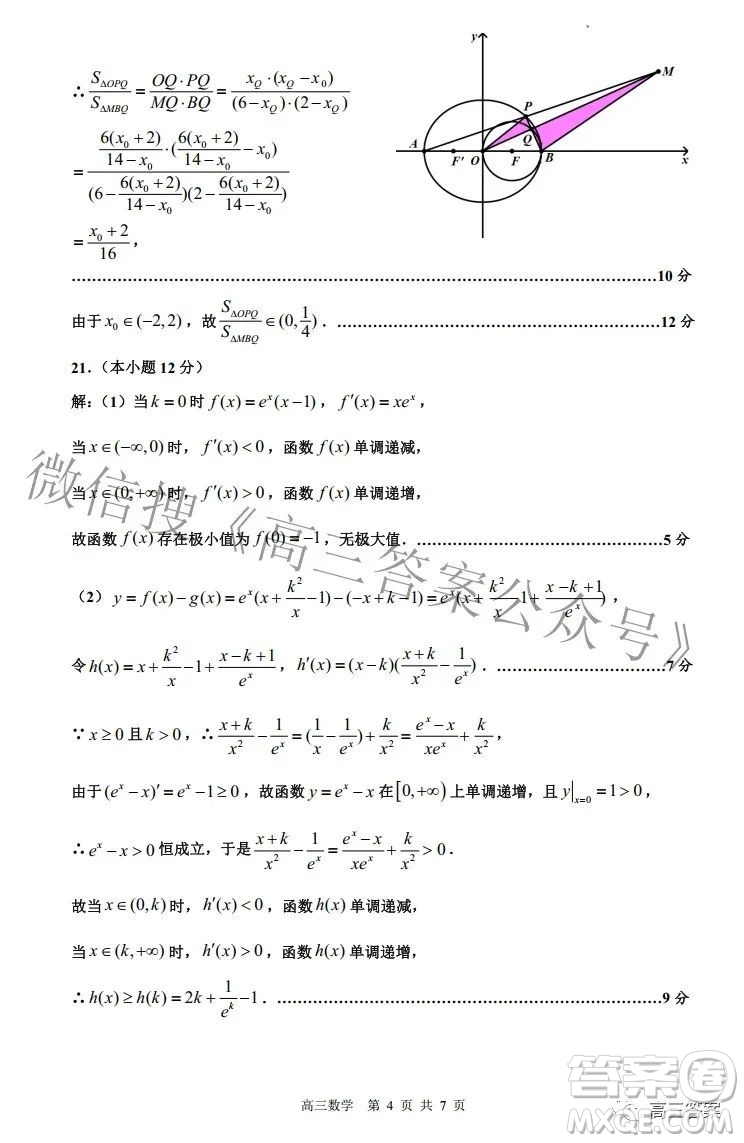 ∴ S△OPQ / S△MBQ = (OQ·PQ)/(MQ·BQ) = (x_Q·(x_Q−x₀))/((6−x_Q)·(2−x_Q))
= (6(x₀+2)/(14−x₀)·(6(x₀+2)/(14−x₀)−x₀))/((6−6(x₀+2)/(14−x₀))(2−6(x₀+2)/(14−x₀)))
= (x₀+2)/16，
y
M
P
A
Q
F′
O
F
B
x
……10 分
由于 x₀∈(−2,2)，故 S△OPQ / S△MBQ ∈(0,1/4)．……12 分
21．（本小题 12 分）
解:（1）当 k=0 时 f(x)=eˣ(x−1)，f′(x)=xeˣ，
当 x∈(−∞,0) 时，f′(x)<0，函数 f(x) 单调递减，
当 x∈(0,+∞) 时，f′(x)>0，函数 f(x) 单调递增，
故函数 f(x) 存在极小值为 f(0)=−1，无极大值．……5 分
（2）y=f(x)−g(x)=eˣ(x+k²/x−1)−(−x+k−1)=eˣ(x+k²/x−1+(x−k+1)/eˣ)，
令 h(x)=x+k²/x−1+(x−k+1)/eˣ，h′(x)=(x−k)((x+k)/x²−1/eˣ)．……7 分
∵ x≥0 且 k>0，∴ (x+k)/x²−1/eˣ=(1/x−1/eˣ)+k/x²=(eˣ−x)/(xeˣ)+k/x²，
由于 (eˣ−x)′=eˣ−1≥0，故函数 y=eˣ−x 在 [0,+∞) 上单调递增，且 y|ₓ₌₀=1>0，
∴ eˣ−x>0 恒成立，于是 (x+k)/x²−1/eˣ=(eˣ−x)/(xeˣ)+k/x²>0．
故当 x∈(0,k) 时，h′(x)<0，函数 h(x) 单调递减，
当 x∈(k,+∞) 时，h′(x)>0，函数 h(x) 单调递增，
∴ h(x)≥h(k)=2k+1/eᵏ−1．……9 分
高三数学 第 4 页 共 7 页
微信搜《高三答案公众号》
答案圈
高三答案
MXQE.COM